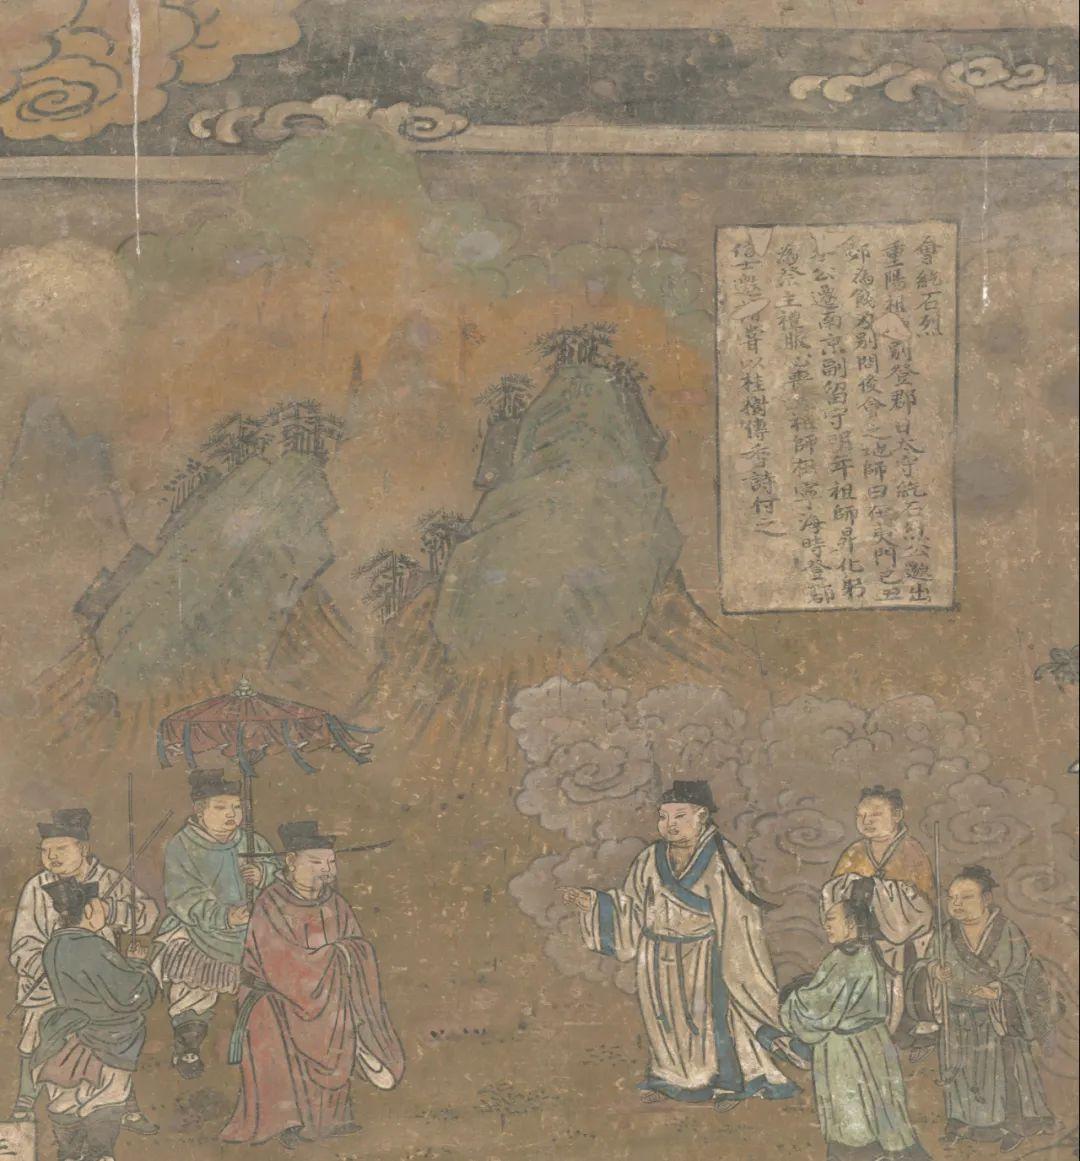 會紇石烈
重陽祖 別登郡日太守紇石烈公邀出
郊為餞為別問後會之地師曰在夷門己丑
公遷南京副留守明年祖師昇化弟
為祭主禮服 祖師 海時登郡
信士邀 嘗以桂樹傳香詩付之
三